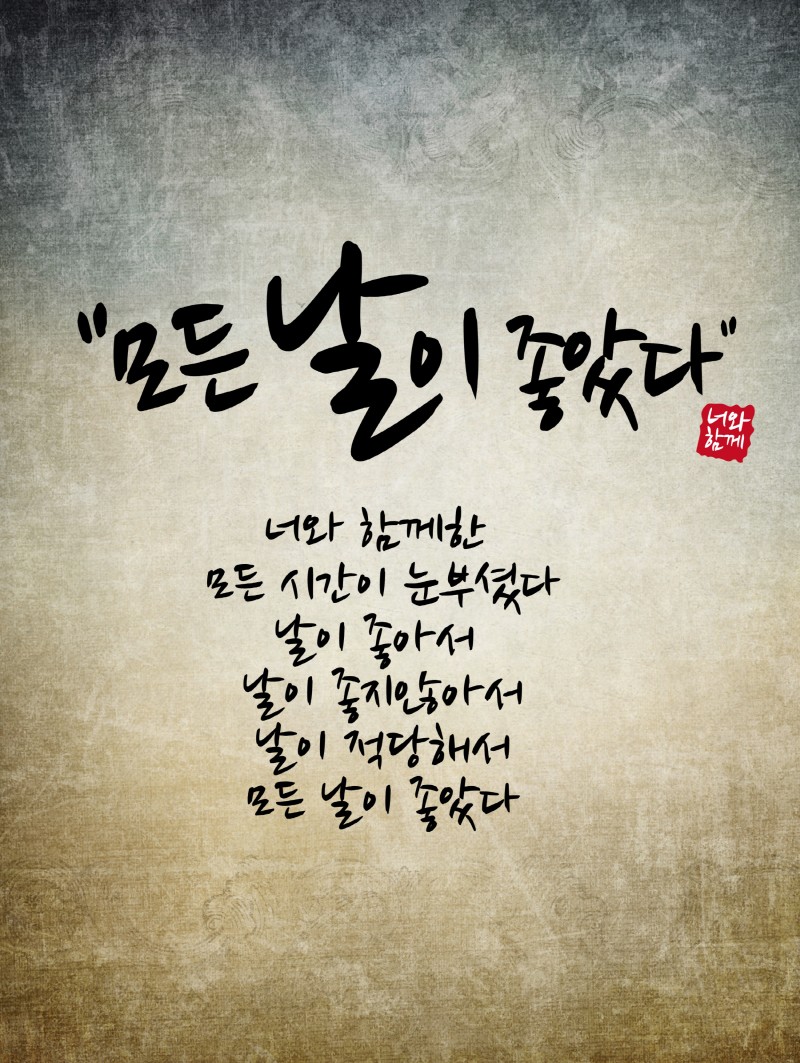 "모든 날이 좋았다"
너와
함께
너와 함께한
모든 시간이 눈부셨다
날이 좋아서
날이 좋지않아서
날이 적당해서
모든 날이 좋았다